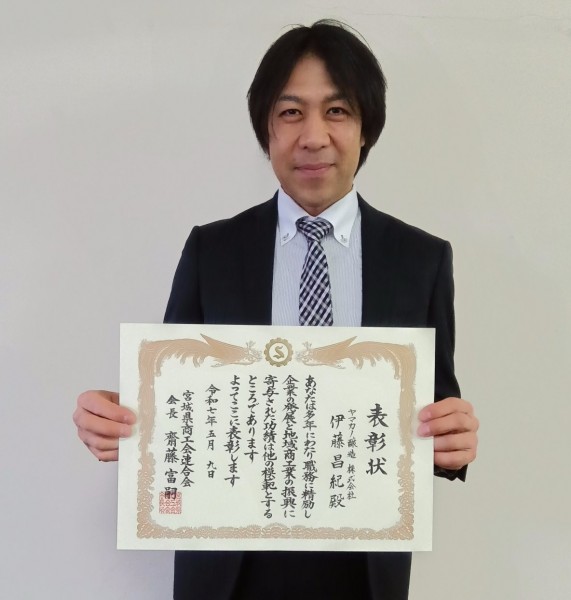 表彰状
ヤマカノ醸造 株式会社
伊藤昌紀殿
あなたは多年にわたり職務に精励し
企業の発展と地域商工業の振興に
寄与された功績は他の模範とする
ところであります
よってここに表彰します
令和七年五月九日
宮城県商工会連合会
会長 齋藤富嗣